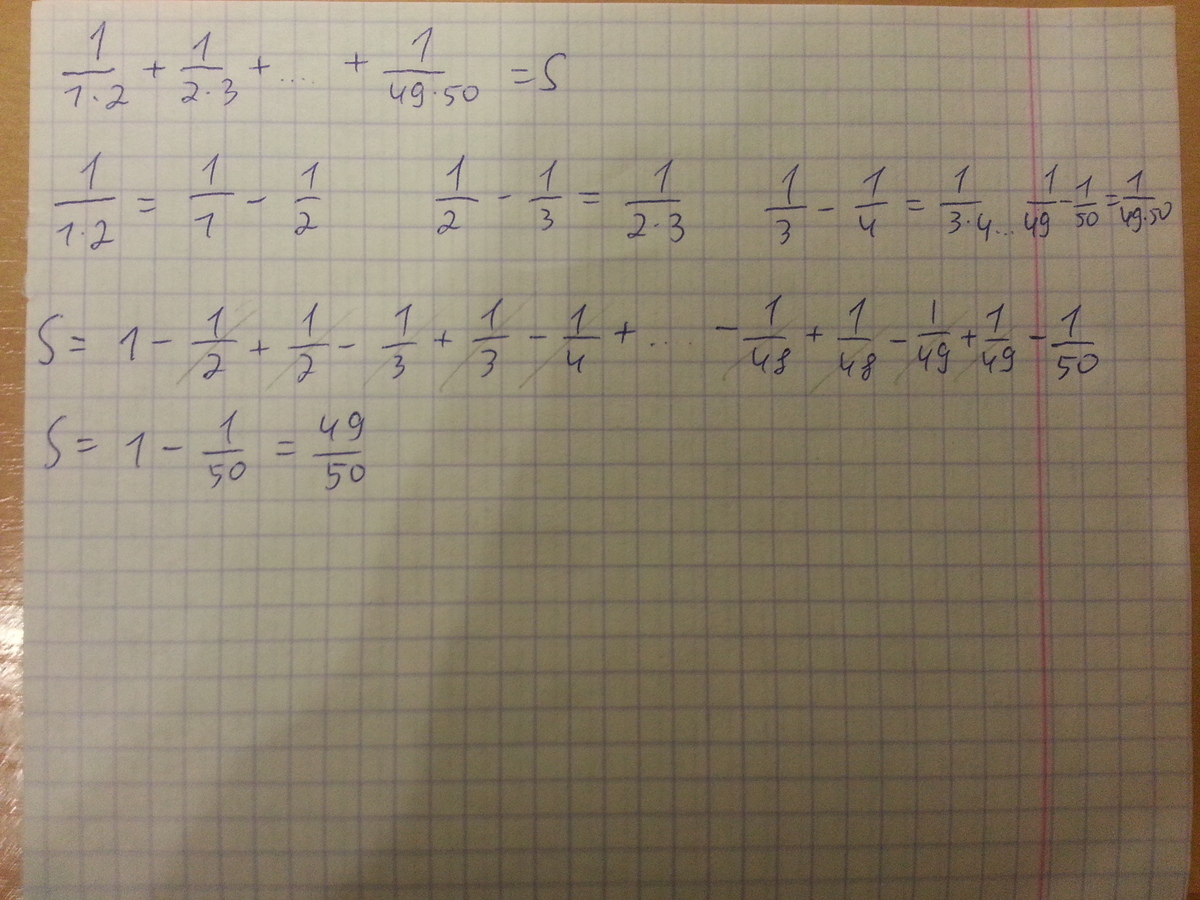 1/(1·2) + 1/(2·3) + .... + 1/(49·50) = S
1/(1·2) = 1/1 - 1/2   1/2 - 1/3 = 1/(2·3)   1/3 - 1/4 = 1/(3·4) ... 1/49 - 1/50 = 1/(49·50)
S = 1 - 1/2 + 1/2 - 1/3 + 1/3 - 1/4 + .... - 1/48 + 1/48 - 1/49 + 1/49 - 1/50
S = 1 - 1/50 = 49/50